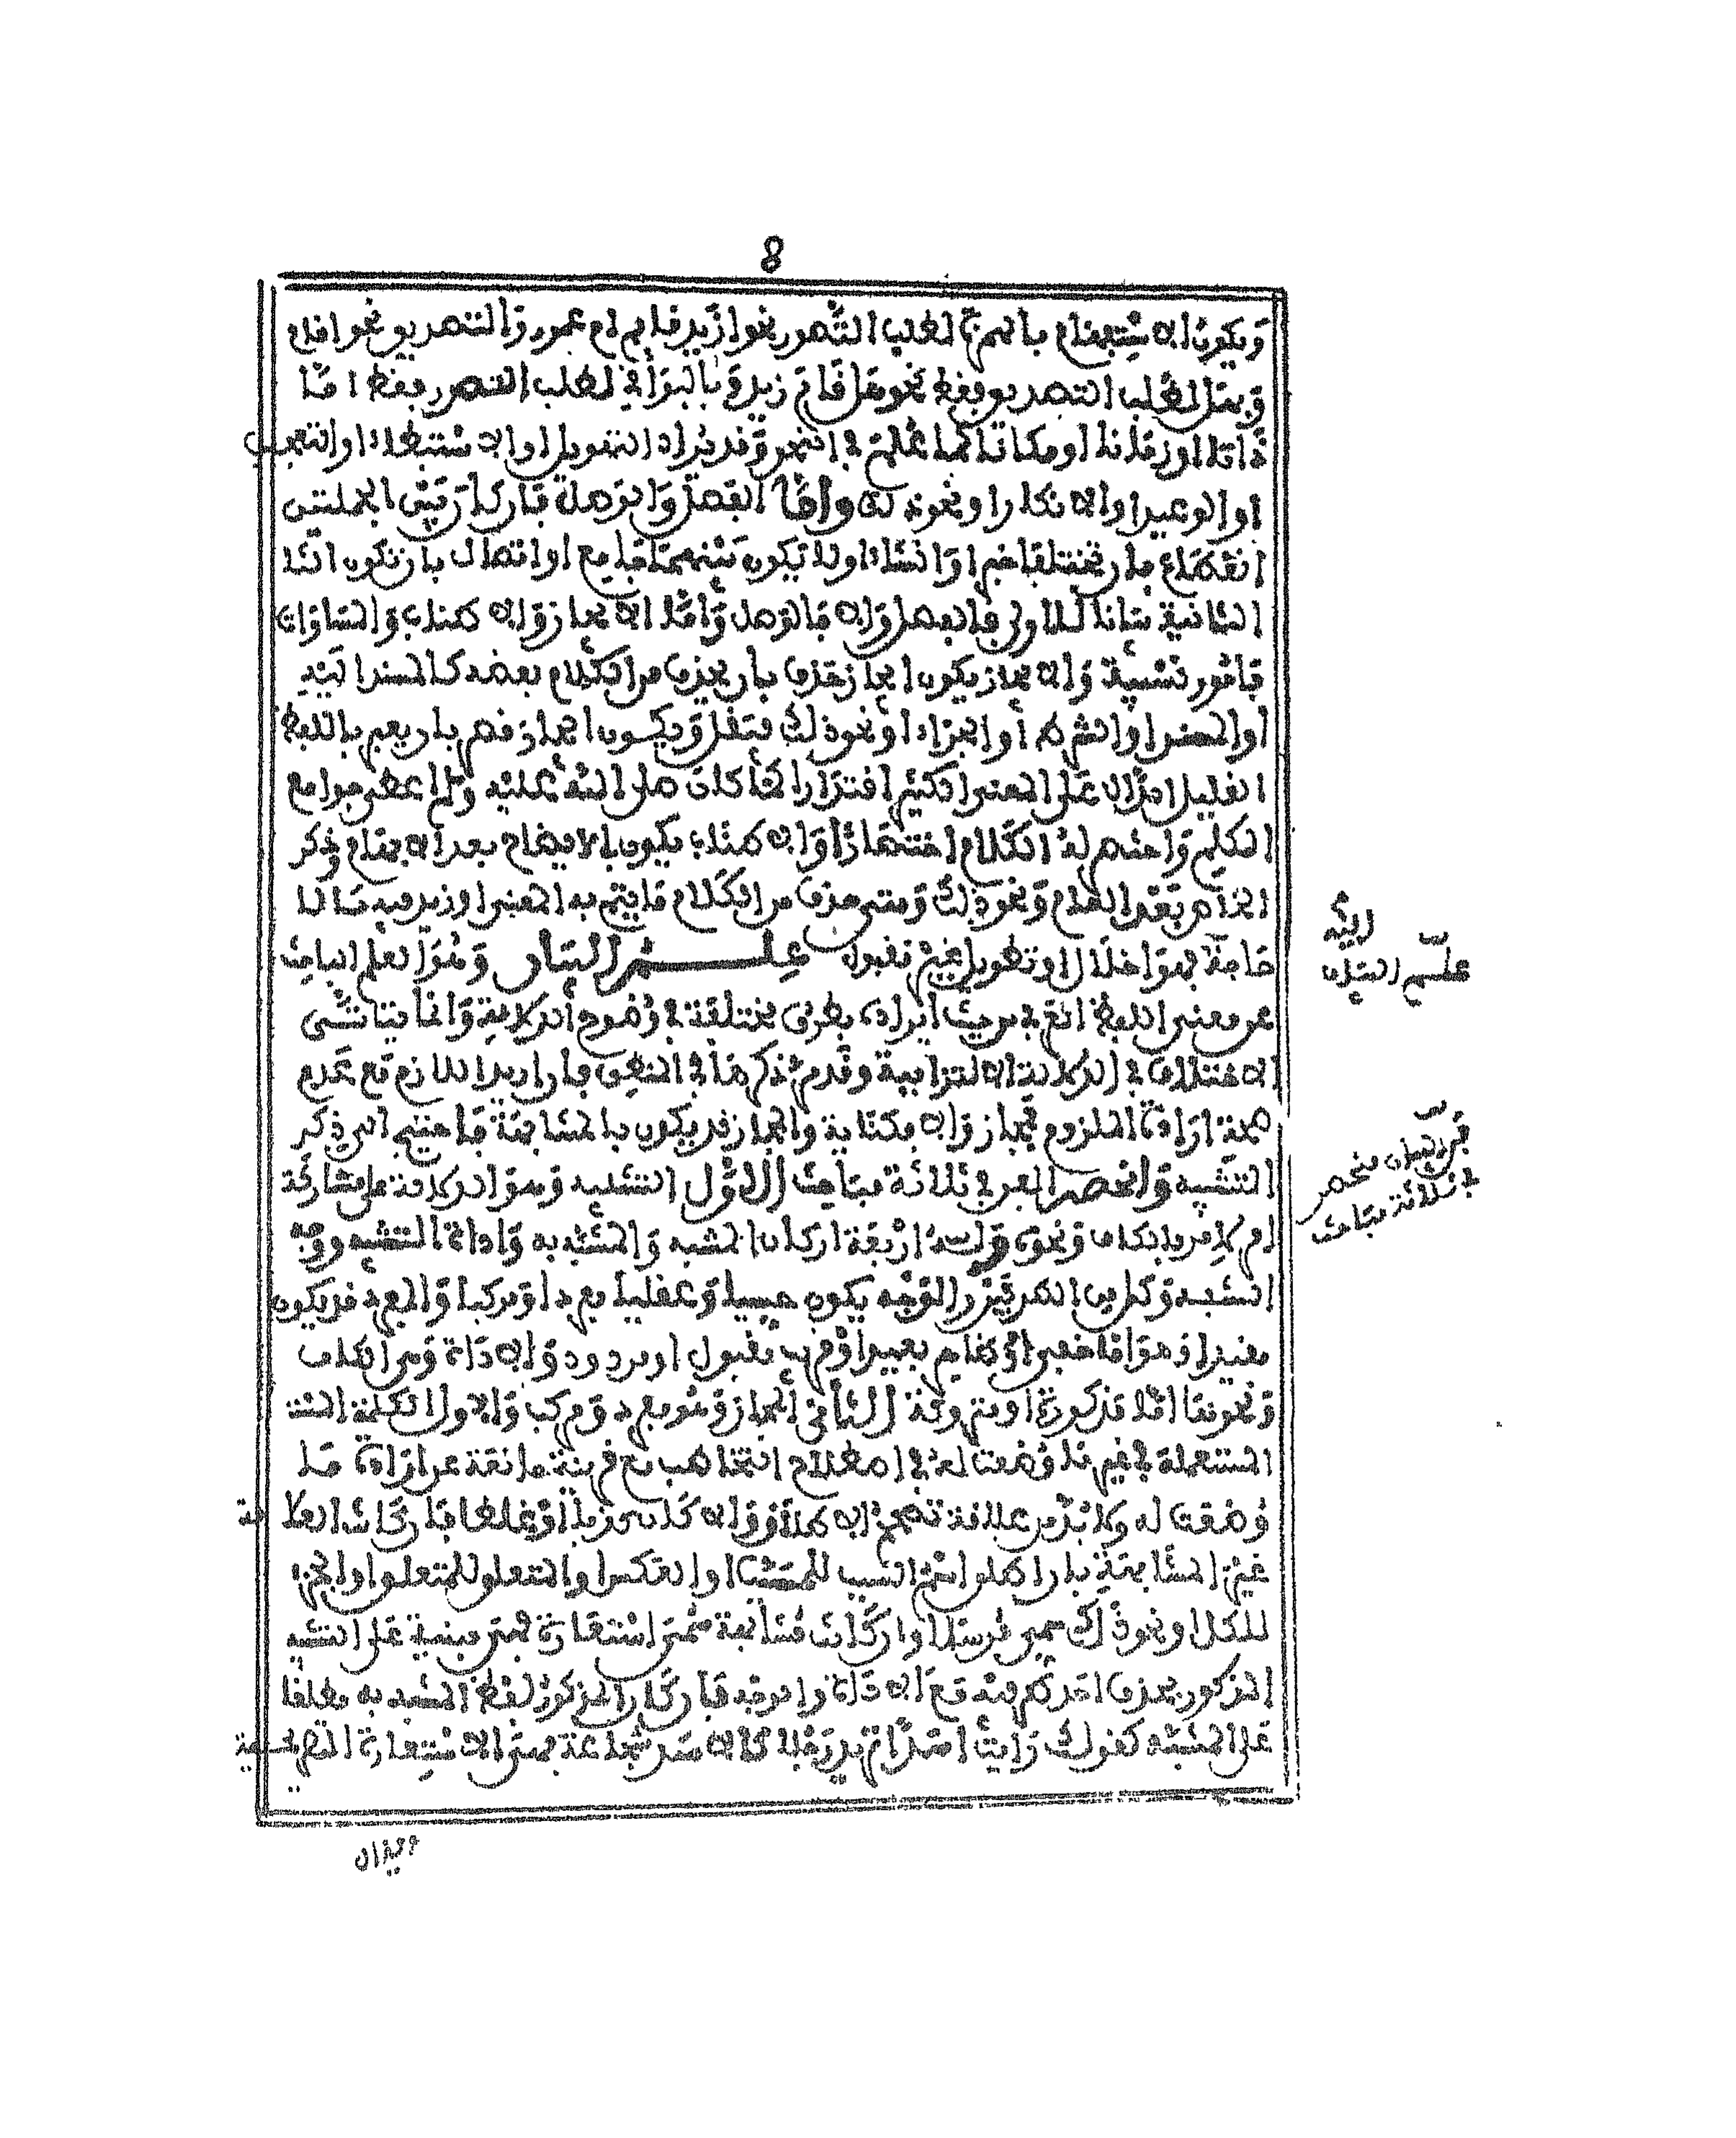 8
ويكون الاستفهام بالهمزة لطلب التصور نحو ازيد قايم ام عمرو والتصديق نحو اقام
وبهل لطلب التصديق فقط نحو هل قام زيد وبالبواقي لطلب التصور فقط اما
ذاتا او زمانا او مكانا كما علم في النحو وقد يراد التهويل او الاستبطاء او التعجب
او الوعيد او الانكار او نحو ذلك واما الفصل والوصل فان كان بين الجملتين
انقطاع بان تختلفا خبرا وانشاء او لا يكون بينهما جامع او اتصال بان تكون
الثانية بيانا للاولى فالفصل والا فالوصل واما الايجاز والاطناب والمساوات
فامور نسبية والايجاز يكون ايجاز حذف بان يحذف من الكلام بعضه كالمسند اليه
او المسند او الشرط او الجزاء او نحو ذلك ويكون ايجاز قصر بان يعبر باللفظ
القليل الدال على المعنى الكثير صلى الله عليه وسلم اعطي جوامع
الكلم واختصر له الكلام اختصارا والاطناب يكون بالايضاح بعد الابهام وذكر
الخاص بعد العام ونحو ذلك ومتى حذف من الكلام ما يتم به المعنى او زيد فيه ما لا
حاجة فهو اخلال او تطويل غير مقبول علم البيان وهو العلم الباحث
عن معنى اللفظ من حيث ايراده بطرق مختلفة في وضوح الدلالة وانما يتاتى
الاختلاف في الدلالة الالتزامية وقد مر ذكرها في المنطق فان اريد اللازم مع عدم
صحة ارادة الملزوم فمجاز والا فكناية والمجاز قد يكون بالمشابهة فاحتيج الى ذكر
التشبيه وانحصر الفن في ثلاثة مباحث الاول التشبيه وهو الدلالة على مشاركة
امر لامر بالكاف ونحوه وله اربعة اركان المشبه والمشبه به واداة التشبيه ووجه
الشبه وكل من الطرفين والوجه يكون حسيا وعقليا مفردا ومركبا والمفرد قد يكون
مقيدا وهو اما خفي او ظاهر بعيد او قريب مقبول او مردود والاداة وهي الكاف
ونحوها اما مذكورة او متروكة الثاني المجاز وهو مفرد ومركب والاول الكلمة
المستعملة في غير ما وضعت له في اصطلاح التخاطب مع قرينة مانعة عن ارادة ما
وضعت له ولا بد من علاقة تصحح الاطلاق والا كان هزلا او غلطا فان كانت العلاقة
غير المشابهة بان اطلق اسم السبب للمسبب او العكس او المتعلق للمتعلق او الجزء
للكل او نحو ذلك سمي مرسلا وان كانت مشابهة سمي استعارة فهي مبنية على التشبيه
المذكور بحذف احد طرفيه مع الاداة والوجه فان كان المذكور لفظ المشبه به مطلقا
على المشبه كقولك رايت اسدا تريد رجلا كالاسد شجاعة سمي الاستعارة التصريحية
اليه
علم البيان
فن البيان منحصر
في ثلاثة مباحث